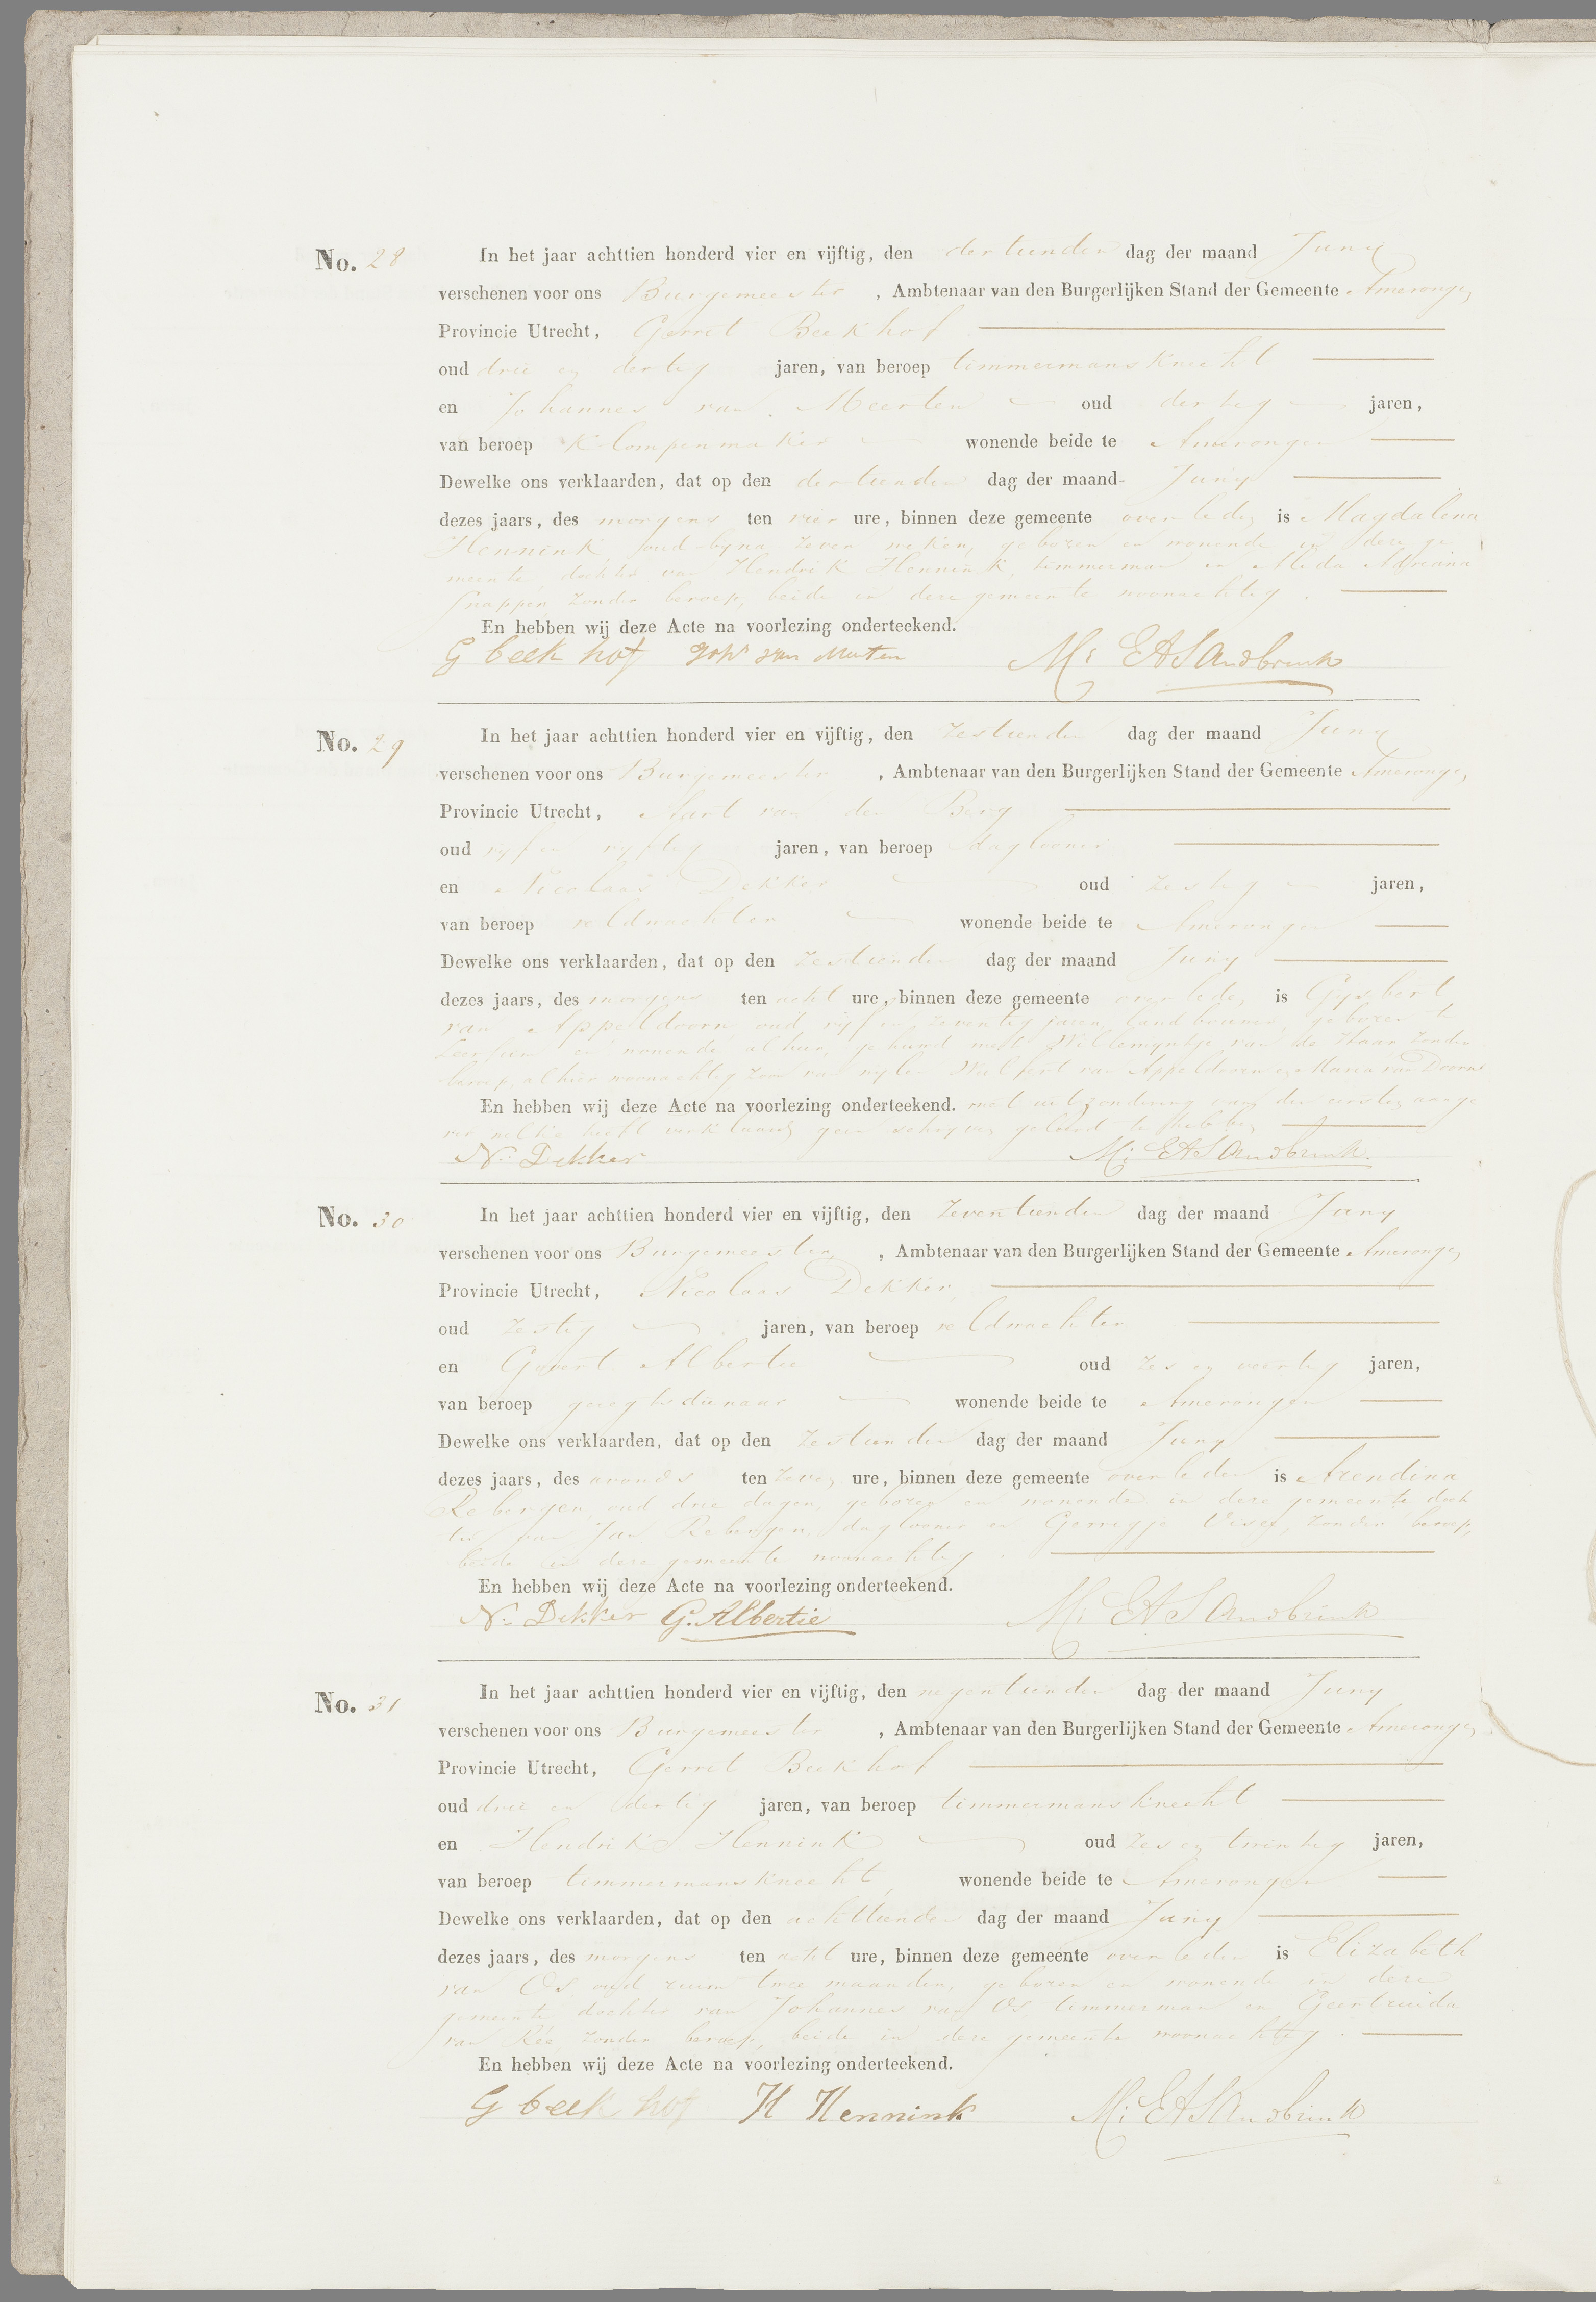 No. 28 In het jaar achttien honderd vier en vijftig, den dertienden dag der maand Juny
verschenen voor ons Burgemeester , Ambtenaar van den Burgerlijken Stand der Gemeente Amerongen
Provincie Utrecht, Gerret Beekhof
oud drie en dertig jaren, van beroep timmermansknecht
en Johannes van Meerten oud dertig jaren,
van beroep Klompenmaker wonende beide te Amerongen
Dewelke ons verklaarden, dat op den dertienden dag der maand Juny
dezes jaars, des morgens ten vier ure, binnen deze gemeente overleden is Magdalena
Hennink, oud byna zeven weken, geboren en wonende in deze ge
meente, dochter van Hendrik Hennink, timmerman en Alida Adriana
Snappen zonder beroep, beide in deze gemeente woonachtig.
En hebben wij deze Acte na voorlezing onderteekend.
G beek hof Joh van Merten Mr EASandbrink
No. 29 In het jaar achttien honderd vier en vijftig, den zestienden dag der maand Juny
verschenen voor ons Burgemeester , Ambtenaar van den Burgerlijken Stand der Gemeente Amerongen,
Provincie Utrecht, Aart van den Berg
oud vyf en vyftig jaren, van beroep daglooner
en Nicolaas Dekker oud zestig jaren,
van beroep veldwachter wonende beide te Amerongen
Dewelke ons verklaarden, dat op den zestienden dag der maand Juny
dezes jaars, des morgens ten acht ure, binnen deze gemeente overleden is Gysbert
van Appeldoorn, oud vyf en zeventig jaren, landbouwer, geboren te
Leersum en wonende alhier, gehuwd met Willemyntje van de Haar zonder
beroep, alhier woonachtig zoon van wylen Wulfert van Appeldoorn en Maria van Doorn
En hebben wij deze Acte na voorlezing onderteekend. met uitzondering van den eersten aange
ver welke heeft verklaard geen schryven geleerd te hebben
N. Dekker Mr EASandbrink.
No. 30 In het jaar achttien honderd vier en vijftig, den zeventienden dag der maand Juny
verschenen voor ons Burgemeester , Ambtenaar van den Burgerlijken Stand der Gemeente Amerongen
Provincie Utrecht, Nicolaas Dekker,
oud zestig jaren, van beroep veldwachter
en Govert Albertie oud zes en veertig jaren,
van beroep geregtsdienaar wonende beide te Amerongen
Dewelke ons verklaarden, dat op den zestienden dag der maand Juny
dezes jaars, des avonds ten zeven ure, binnen deze gemeente overleden is Arendina
Rebergen, oud drie dagen, geboren en wonende in deze gemeente doch
ter van Jan Rebergen, daglooner en Gerregje Visee, zonder beroep,
beide in deze gemeente woonachtig.
En hebben wij deze Acte na voorlezing onderteekend.
N. Dekker G. Albertie Mr EASandbrink
No. 31 In het jaar achttien honderd vier en vijftig, den negentienden dag der maand Juny
verschenen voor ons Burgemeester , Ambtenaar van den Burgerlijken Stand der Gemeente Amerongen
Provincie Utrecht, Gerret Beekhof
oud drie en dertig jaren, van beroep timmermansknecht
en Hendrik Hennink oud zes en twintig jaren,
van beroep timmermansknecht, wonende beide te Amerongen
Dewelke ons verklaarden, dat op den achttienden dag der maand Juny
dezes jaars, des morgens ten acht ure, binnen deze gemeente overleden is Elizabeth
van Os, oud ruim twee maanden, geboren en wonende in deze
gemeente dochter van Johannes van Os, timmerman en Geertruida
van Ree zonder beroep, beide in deze gemeente woonachtig.
En hebben wij deze Acte na voorlezing onderteekend.
G beek hof H Hennink Mr EASandbrink